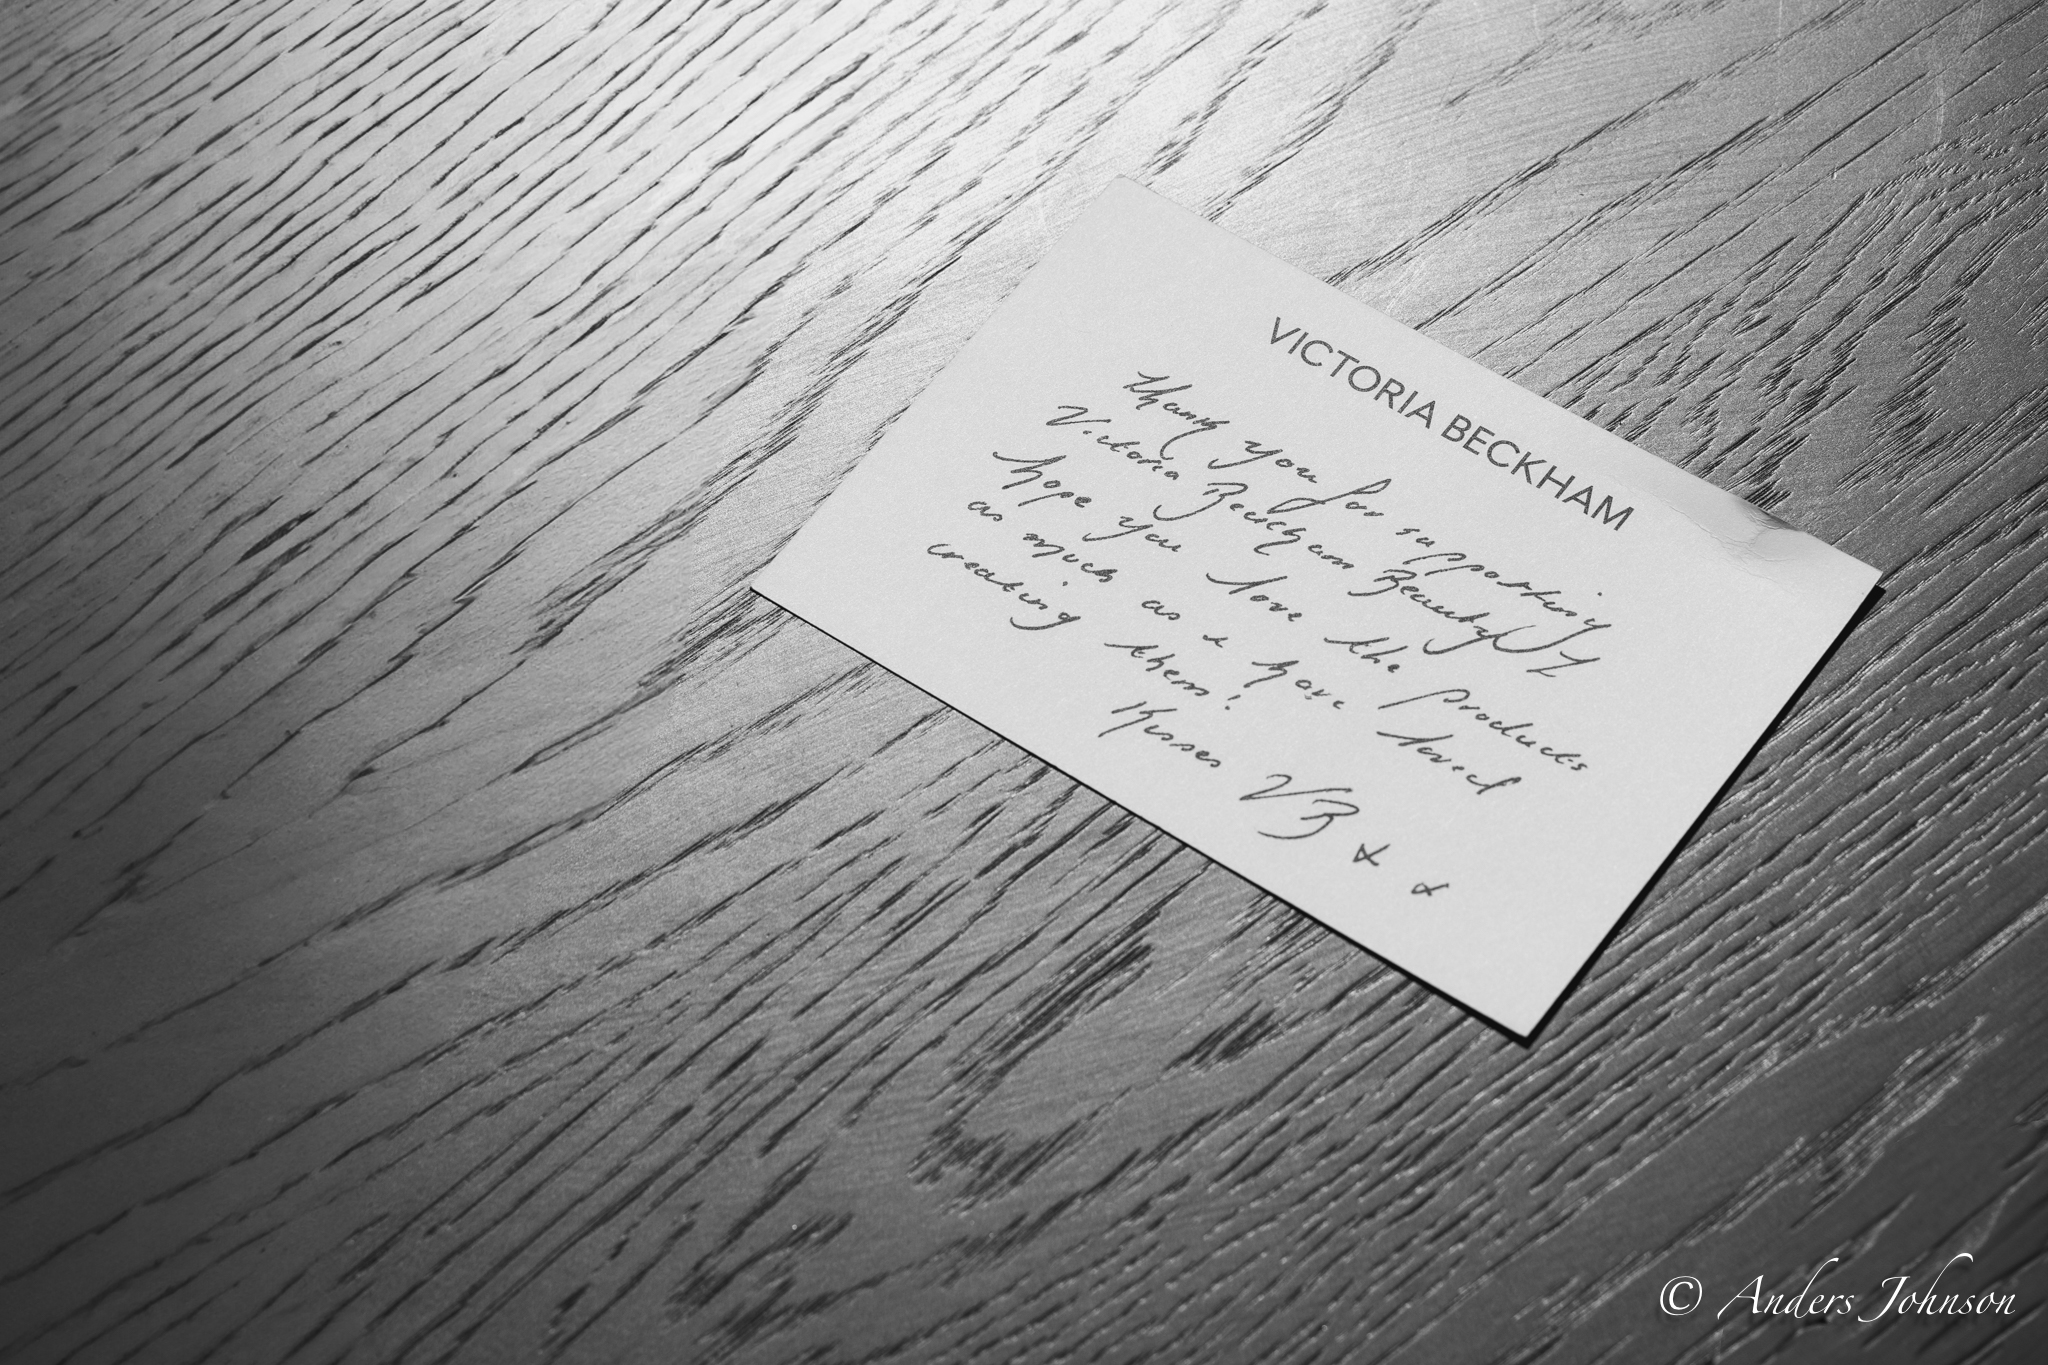 VICTORIA BECKHAM
Thank you for supporting
Victoria Beckham Beauty I
hope you love the products
as much as I have loved
creating them!
Kisses VB x x
© Anders Johnson